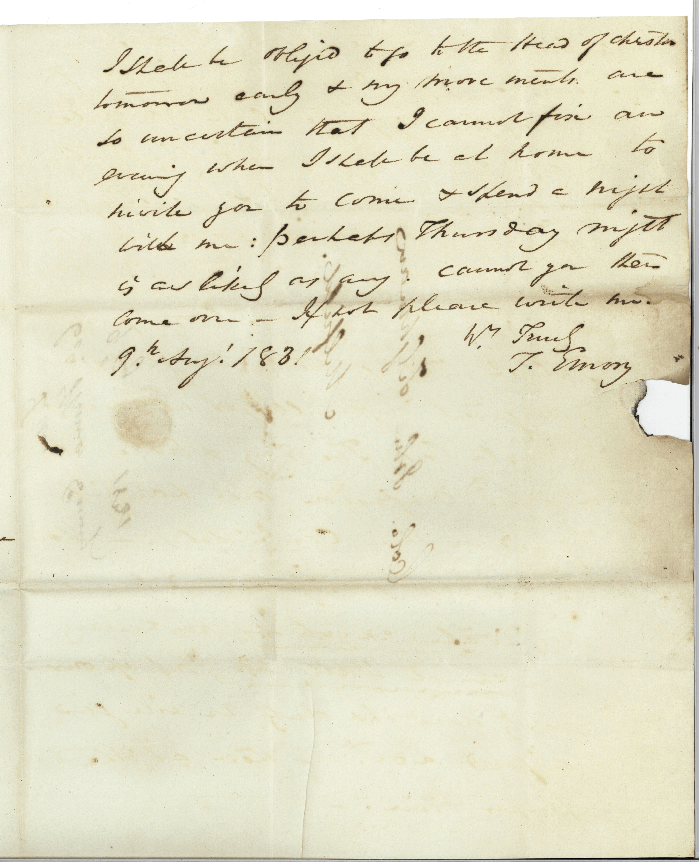 I shall be obliged to go to the Head of Chester
tomorrow early & my movements are
so uncertain that I cannot fix an
evening when I shall be at home to
invite you to come & spend a night
with me: perhaps Thursday night
is as likely as any. cannot you then
come over – If not please write me.
Truly
9th Augt 1831 T. Emory